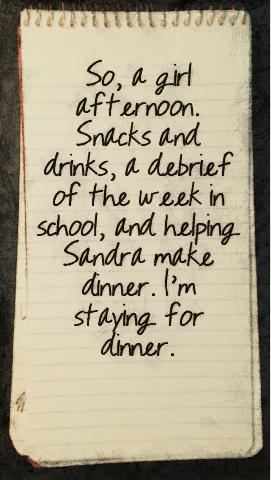 So, a girl
afternoon.
Snacks and
drinks, a debrief
of the week in
school, and helping
Sandra make
dinner. I'm
staying for
dinner.